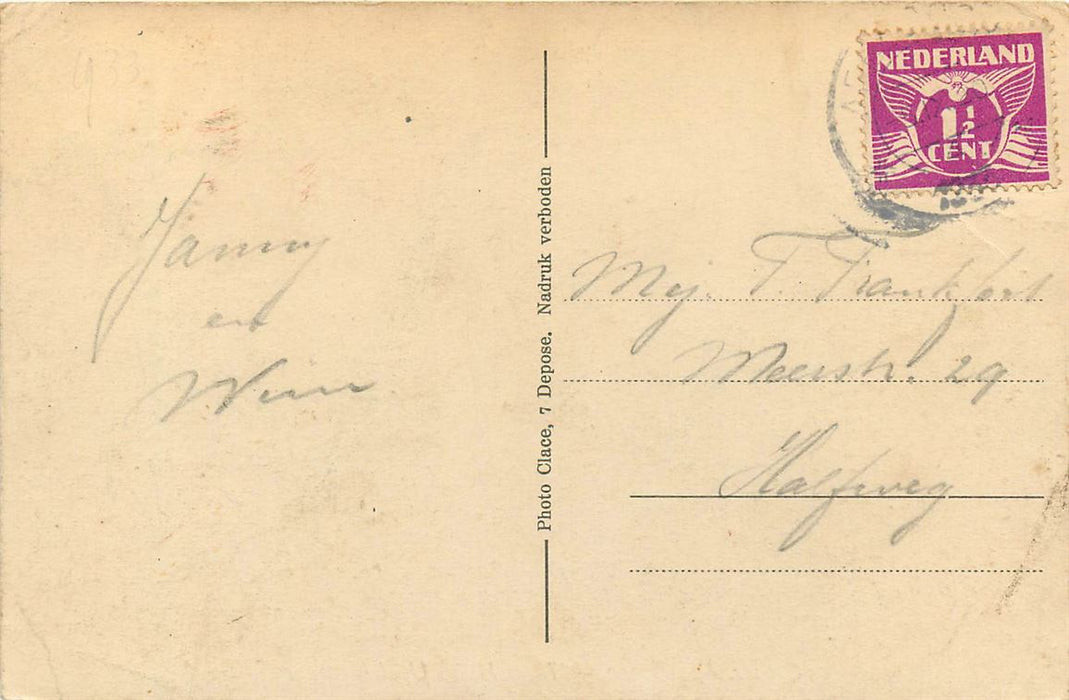 933
Janny
en
Wim
Photo Clace, 7 Depose. Nadruk verboden
NEDERLAND
1 1/2
CENT
Mej. T. Frankfort
Meerstr. 29
Halfweg